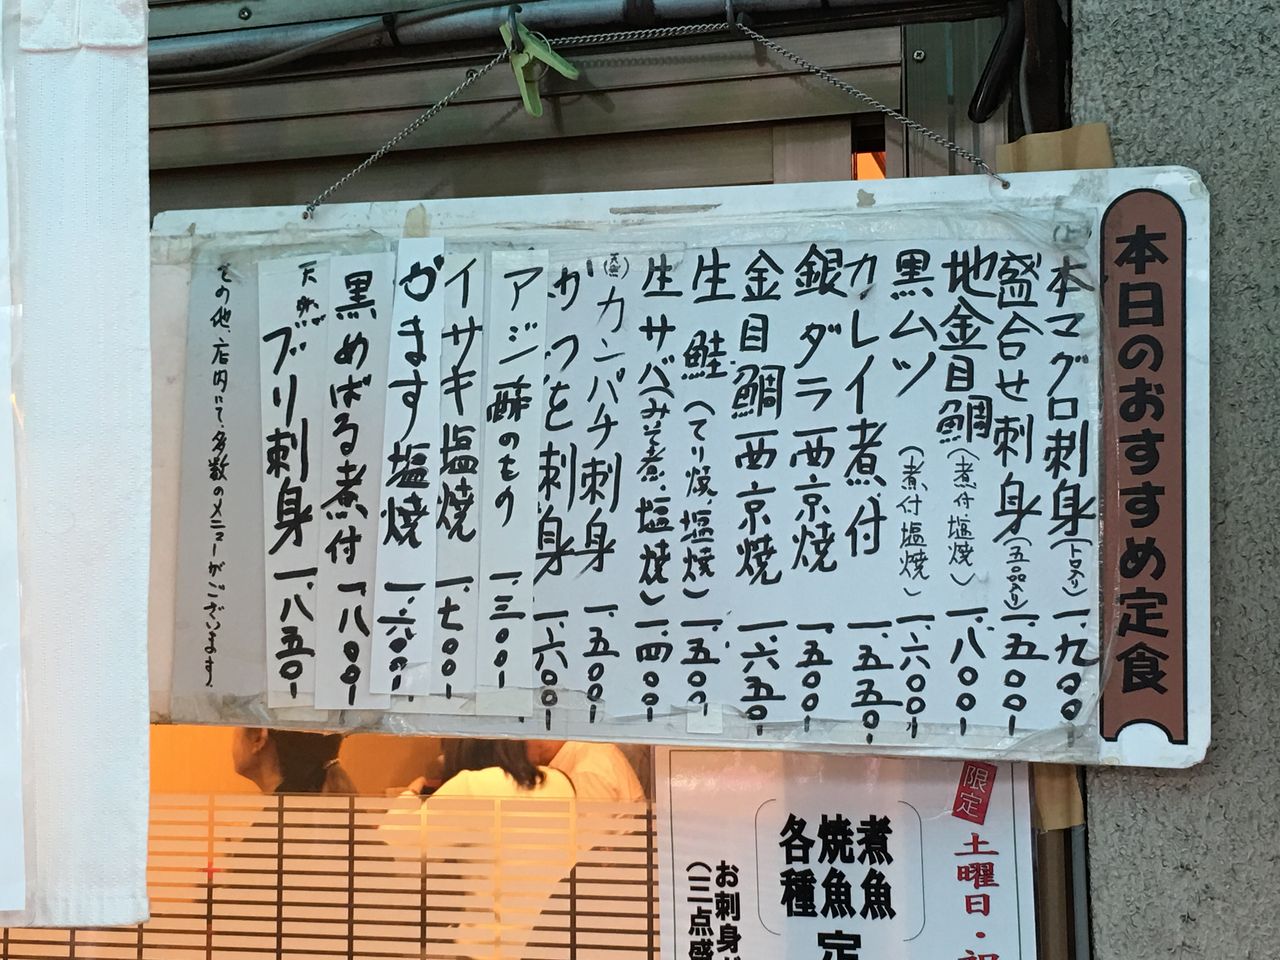 本日のおすすめ定食
本マグロ刺身(トロ入り)一、九〇〇
盛合せ刺身(五品入り)一、五〇〇-
地金目鯛(煮付、塩焼)一、八〇〇-
黒ムツ(煮付 塩焼)一、六〇〇-
カレイ煮付 一、五五〇-
銀ダラ西京焼 一、五〇〇-
金目鯛西京焼 一、六五〇-
生 鮭(てり焼、塩焼)一、五〇〇-
生サバ(みそ煮、塩焼)一、四〇〇-
(天然)カンパチ刺身 一、五〇〇-
かつを刺身 一、六〇〇-
アジ酢のもの 一、三〇〇-
イサキ塩焼 一、七〇〇-
かます塩焼 一、六〇〇-
黒めばる煮付 一、八〇〇-
天然ブリ刺身 一、八五〇-
その他、店内にて、多数のメニューがございます。
限定
土曜日・祝
煮魚
焼魚
各種
定
お刺身
(三点盛